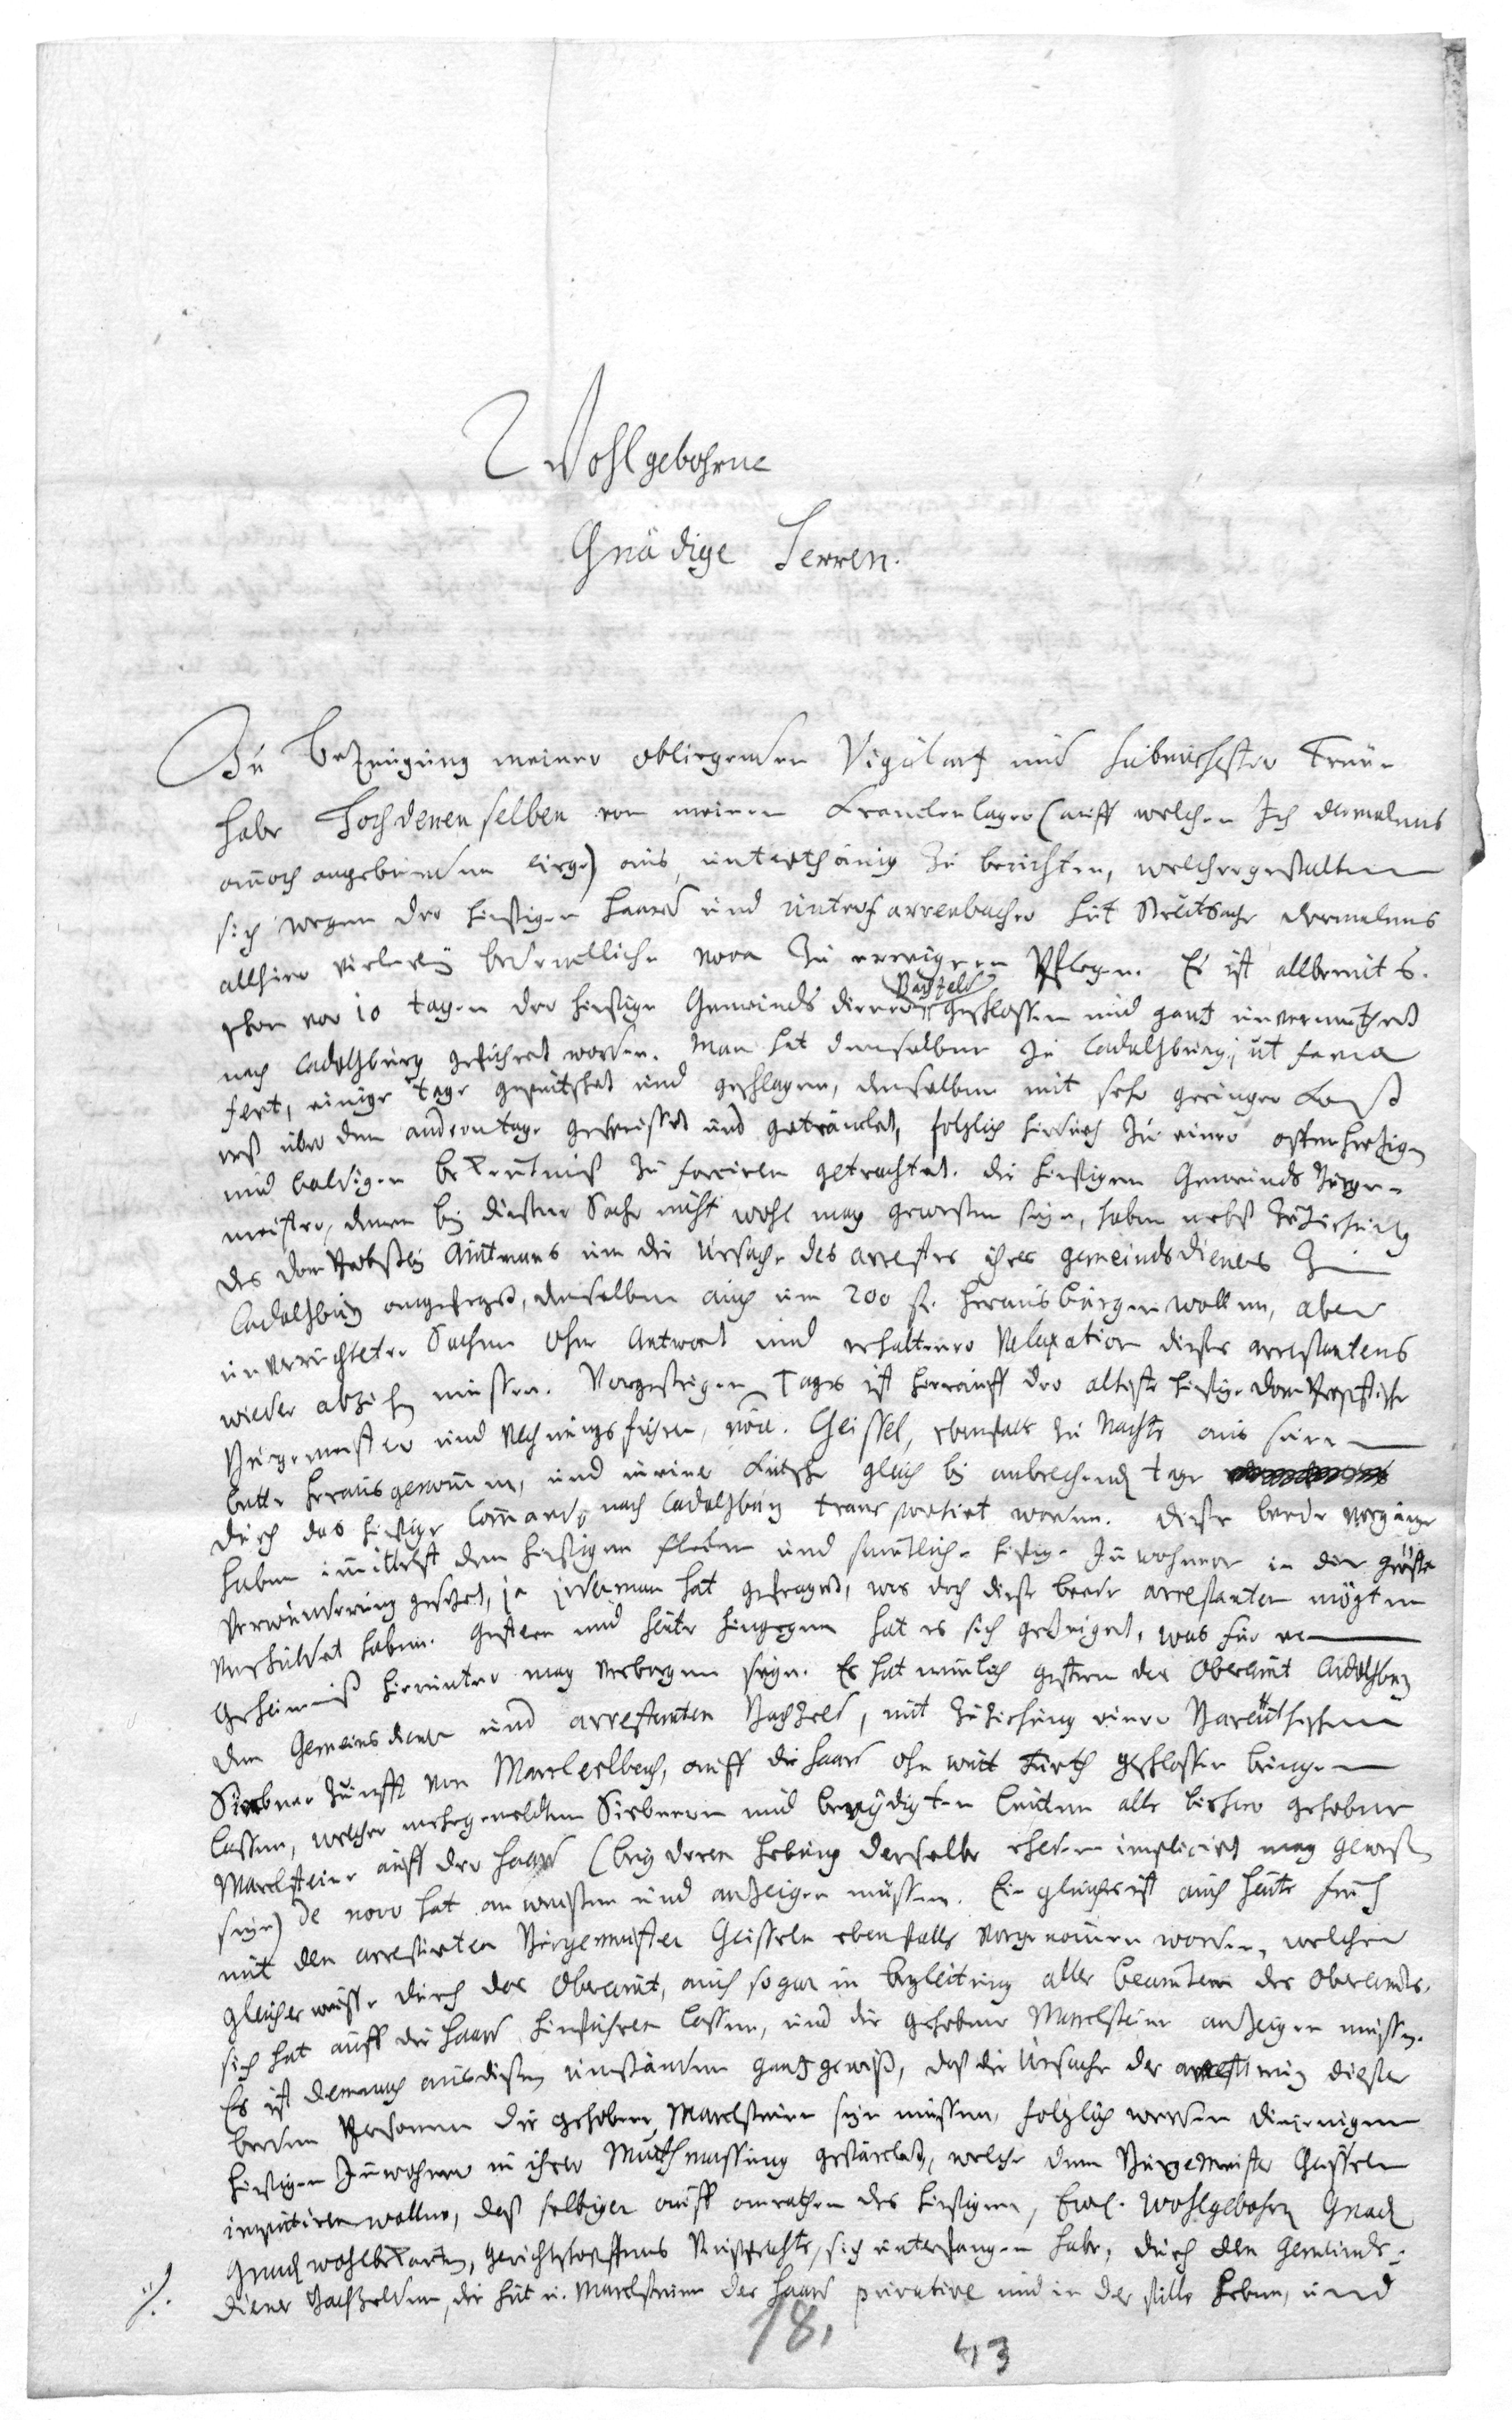 Wohlgebohrne
Gnädige Herren.
Zu Bezeugung meiner obliegenden Vigilantz und Treüe
habe Hochdenenselben von meinem Krancken lager (auff welchen Ich dermalens
annoch angebunden liege) aus, unterthänig zu berichten, welchergestalten
sich wegen der hiesigen Haard und Unterfarrenbacher Hut Streitsache dermalens
allhier vielerley bedenckliche nova zu ereignen pflegen. Es ist allbereits
schon vor 10 tagen der hiesige Gemeinds diener geschlossen und gantz unvermuthet
Bachfeld
nach Cadoltzburg geführet worden. Man hat denselben zu Cadoltzburg, ut fama
fert, einige tage gepeitschet und geschlagen, denselben mit sehr geringer Kost
erst über den andern tage gespeisset und geträncket, folglich hierdurch zu einer offenhertzigen
und baldigen bekentniß zu forciren getrachtet. die hiesigen Gemeinds Bürge-
meister, denen bey dieser Sache nicht wohl mag gewesen seyn, haben nebst Zuziehung
des Dom Probstey Amtmans um die Ursache des arrestes ihres gemeindsdieners zu
Cadoltzburg angefragt, denselben auch um 200 fl. heraus bürgen wollen, aber
unverrichteter Sachen ohne Antwort und erhaltener Relaxation dieses arrestantens
wieder abziehen müssen. Vorgestrigen Tages ist hierauff der älteste hiesige Dom Probstische
Bürgermeister und Rechnungsführer, Geissel, ebenfals zu Nachts aus seinem
bette herausgenommen, und in einer Kutsche gleich bey anbrechenden tage
durch das hiesige Commando nach Cadoltzburg transportirt worden. Diese beede vorgänge
haben immittelst den hiesigen flecken und sämtliche hiesige Inwohner in die gröste
Verwunderung gesetzet, ja jederman hat gefraget, was doch diese beede arrestanten mögten
verschuldet haben. Gestern und heute hingegen hat es sich gezeiget, was für ein
Geheimniß hierunter mag verborgen seyn. Es hat nemlich gestern das Oberamt Cadoltzburg
den Gemeinsdiener und arrestanten Bachfeld, mit Zuziehung einer Bareuthischen
Siebner Zunfft von Marckerlbach, auff die Haard ohn weit Fürth geschlossen bringen
lassen, welcher mehrgemeldten Siebnern und beeydigten leuten alle bishero gehobene
Marcksteine auff der Haard (bey deren hebung derselbe ehedem implicirt mag gewesen
seyn) de novo hat anweisen und anzeigen müssen. Ein gleiches ist auch heute früh
mit den arrestirten Bürgermeister Geisseln ebenfalls vorgenommen worden, welcher
gleicher weisse durch das Oberamt, auch sogar in begleitung aller beamten des Oberamts,
sich hat auff die Haard hinführen lassen, und die gehobene Marcksteine anzeigen müssen.
Es ist demnach aus diesen umständen gantz gewiß, daß die Ursache der arrestirung dieser
beeden Personen die gehobene Marcksteine seyn müssen, folglich werden diejenigen
hiesigen Inwohner in ihrer Muthmassung gestärcket, welche dem Bürgermeister Geisseln
imputiren wollen, daß selbiger auff anrathen des hiesigen, Wohlgebohrn Gnad
Gnad wohlbekanten, Gerichtsschöffens sich unterfangen habe, durch den Gemeinds-
diener Bachfelden, die Hut u. Marcksteine der Haard privative und in der stille heben, und
18,
43